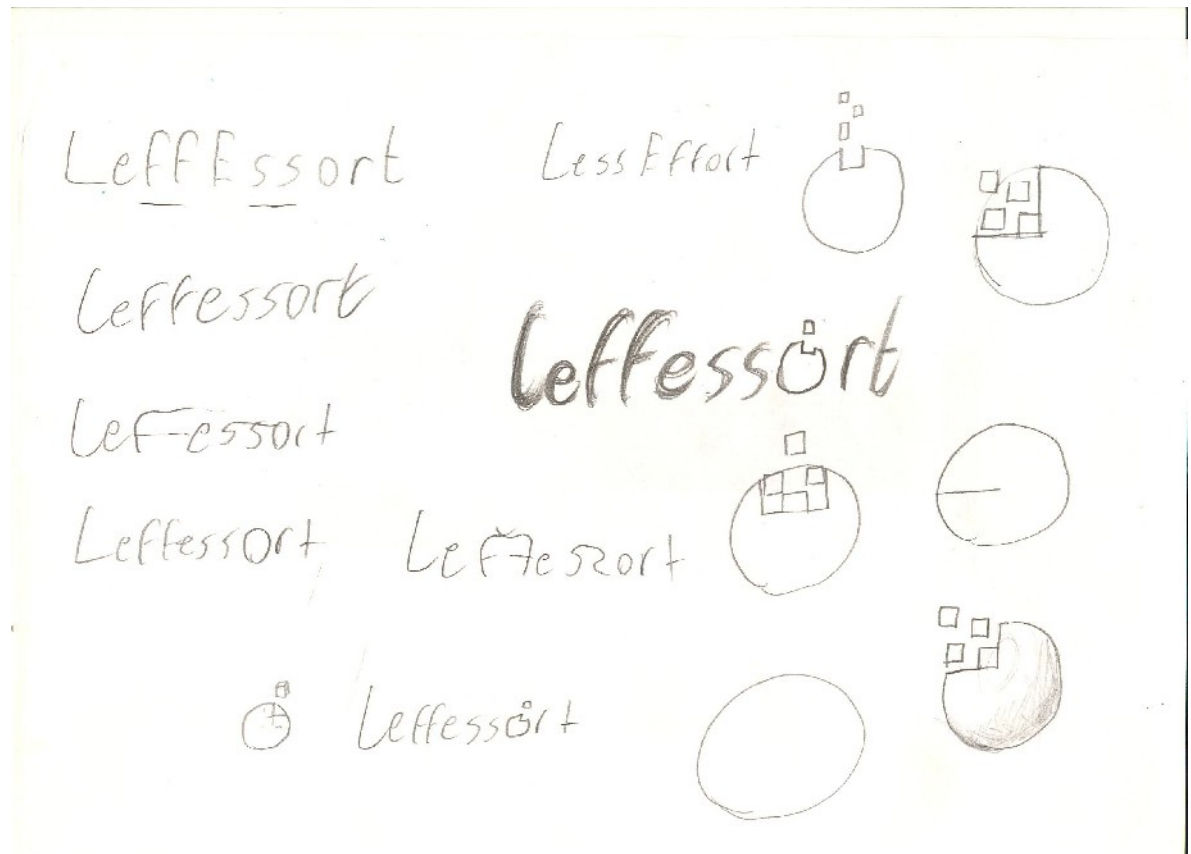 LeffEssort
LessEffort
Leffessort
Leffessort
Leffessort
Leffessort
Leffessort
Leffessort